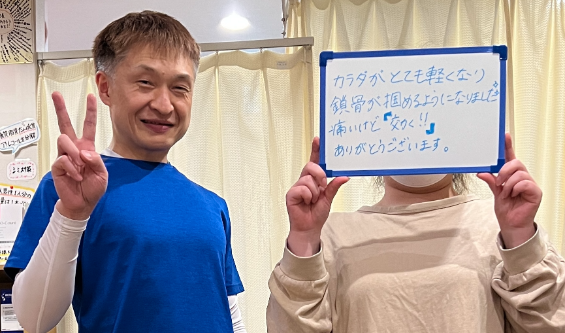 カラダがとても軽くなり
鎖骨が掴めるようになりました
痛いけど『効く!!』
ありがとうございます。